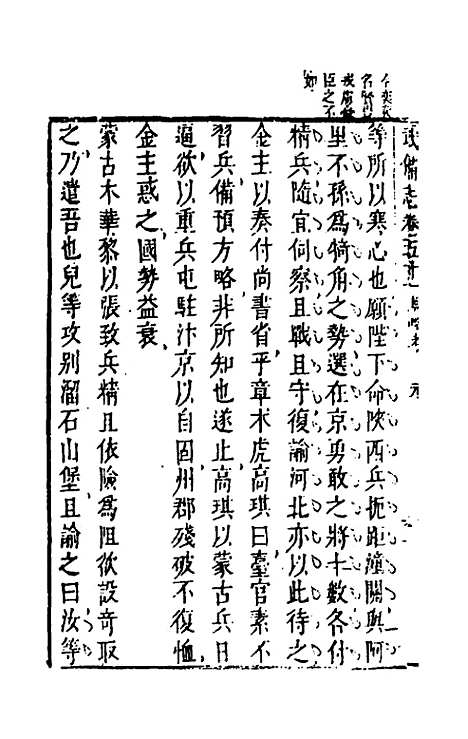 臣之不
武備志卷五十一
元
等所以寒心也願陛下命陝西兵扼距潼關與阿
里不孫為犄角之勢選在京勇敢之將十數各付
精兵隨宜伺察且戰且守復諭河北亦以此待之
金主以奏付尚書省平章术虎高琪曰臺官素不
習兵備預方略非所知也遂止高琪以蒙古兵日
逼欲以重兵屯駐汴京以自固州郡殘破不復恤
金主惑之國勢益衰
蒙古木華黎以張致兵精且依險為阻欲設奇取
之乃遣吾也兒等攻別溜石山堡且諭之曰汝等